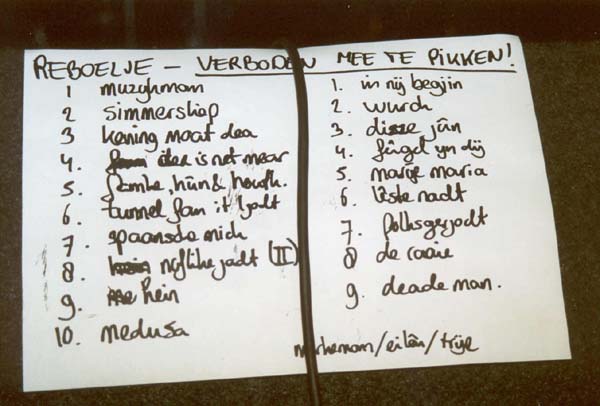 REBOELJE – VERBODEN MEE TE PIKKEN!
1 muzykman
2 simmersliep
3 kening moat dea
4. is net mear
5. famke, hûn &
6. tunnel fan it ljocht
7. spaansde mich
8. nijlike jadt (II)
9. hein
10. medusa
1. in nij begjin
2. wurch
3. disze jûn
4. fûgel yn dij
5. marije maria
6. lêste nacht
7.
8 de raaie
9. deade man.
/ eilân / trije